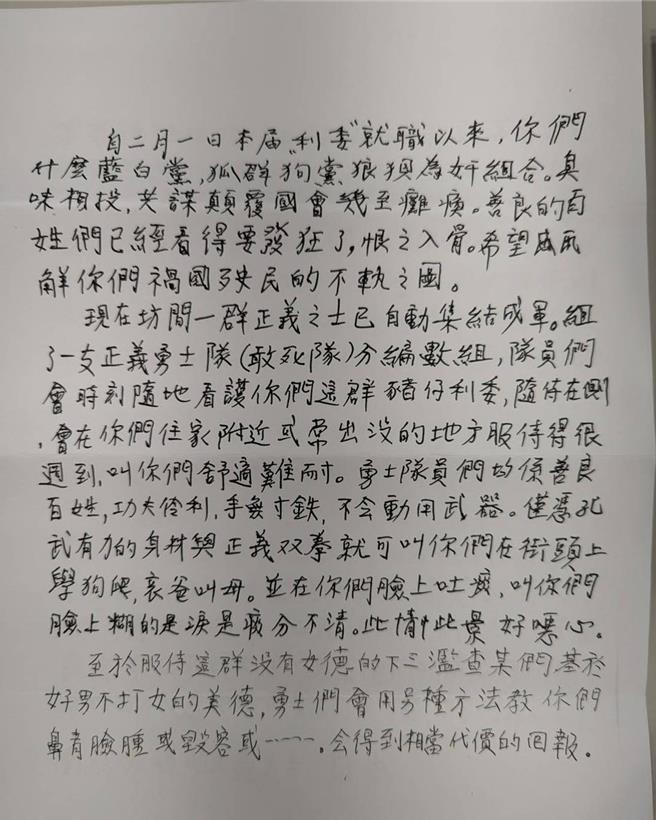 自二月一日本届"利委"就職以來，你們
什麼藍白黨，狐群狗黨狼狽為奸組合。臭
味相投，共謀顛覆國會幾至癱瘓。善良的百
姓們已經看得要發狂了，恨之入骨。希望
解你們禍國殃民的不軌之圖。
現在坊間一群正義之士已自動集結成軍。組
了一支正義勇士隊(敢死隊)分編數組，隊員們
會時刻隨地看護你們這群豬仔利委，隨侍在側
，會在你們住家附近或常出没的地方服侍得很
週到，叫你們舒適難耐。勇士隊員們均係善良
百姓，功夫伶利，手無寸鉄，不会動用武器。僅憑孔
武有力的身材與正義双拳就可叫你們在街頭上
學狗爬，哀爸叫母。並在你們臉上吐痰，叫你們
臉上糊的是淚是痰分不清。此情此景好噁心。
至於服侍這群没有女德的下三濫查某們基於
好男不打女的美德，勇士們會用另種方法教你們
鼻青臉腫或毀容或……。会得到相當代價的回報。